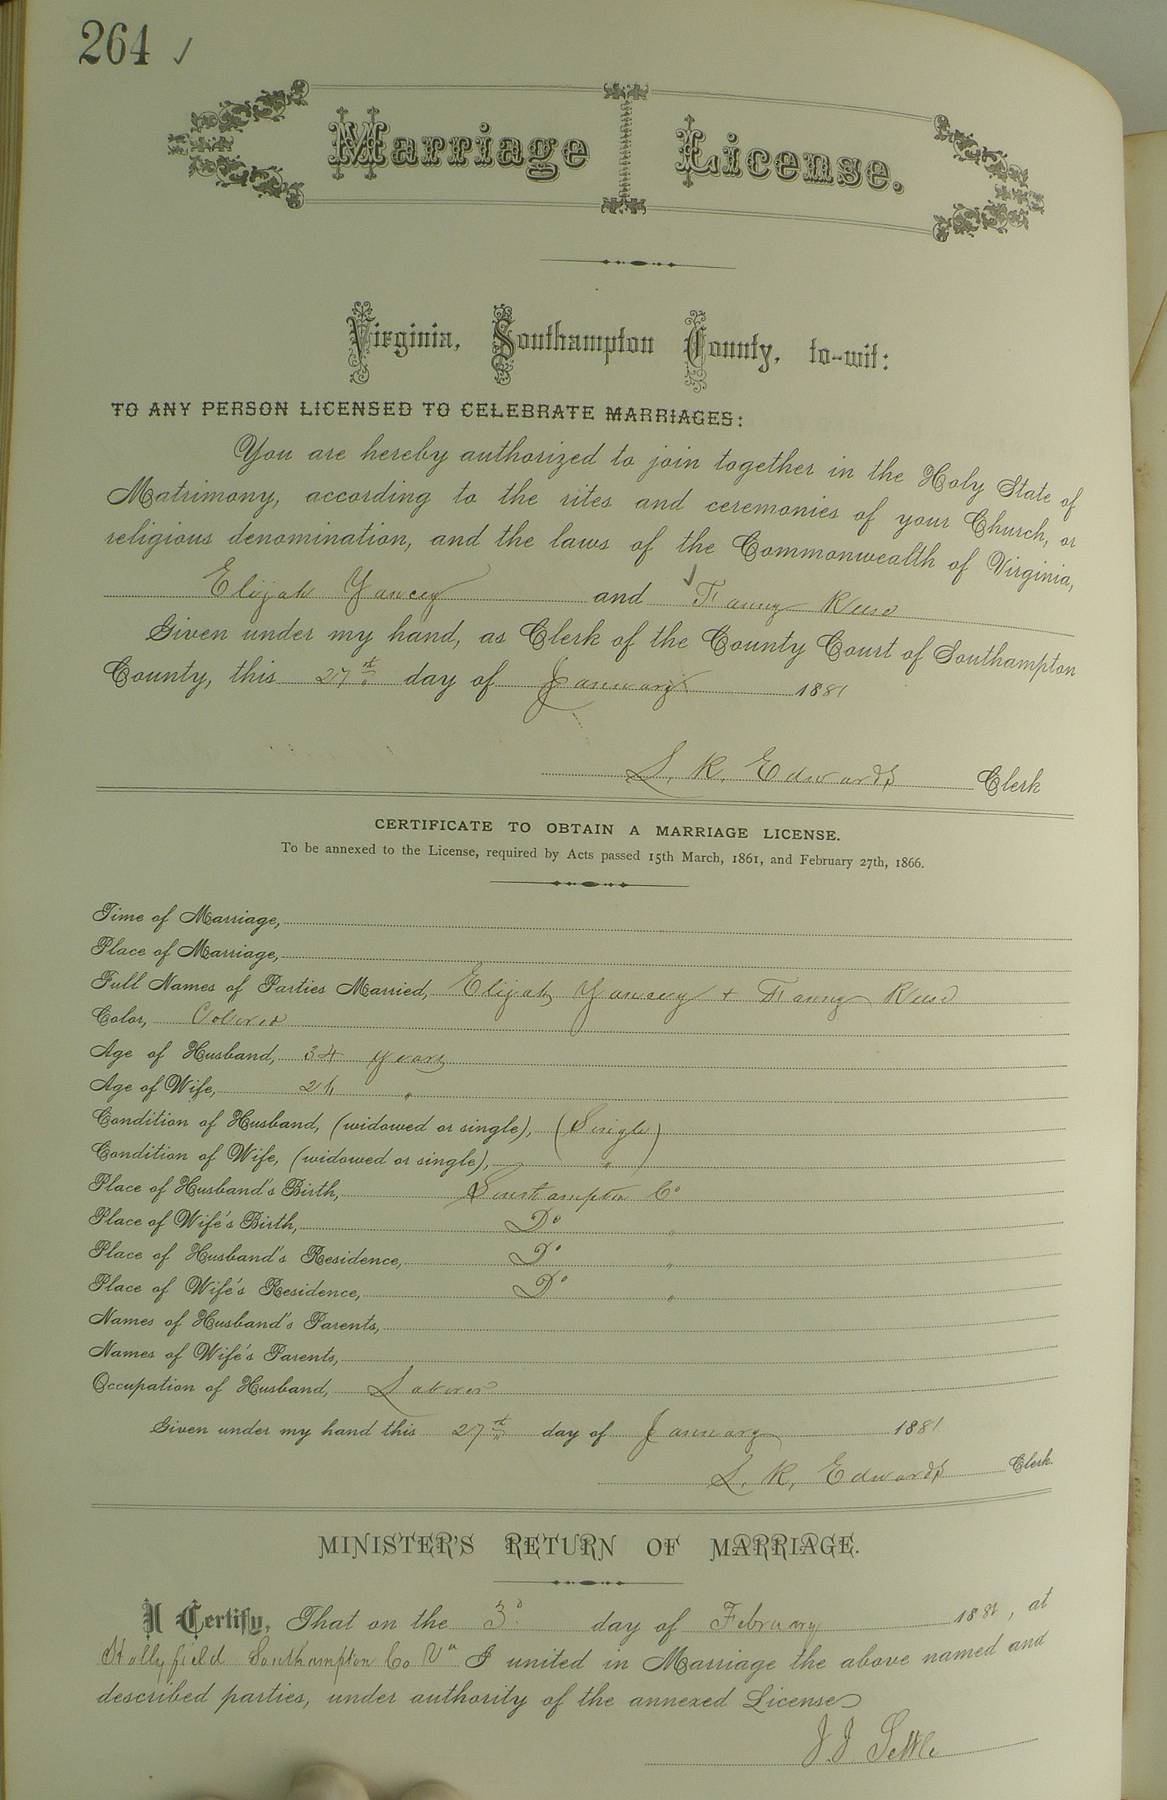 264 ✓
Marriage License.
Virginia, Southampton County, to-wit:
TO ANY PERSON LICENSED TO CELEBRATE MARRIAGES:
You are hereby authorized to join together in the Holy State of
Matrimony, according to the rites and ceremonies of your Church, or
religious denomination, and the laws of the Commonwealth of Virginia,
Elijah Yancey and Fanny
Given under my hand, as Clerk of the County Court of Southampton
County, this 27th day of January 1881
L. R. Edwards Clerk
CERTIFICATE TO OBTAIN A MARRIAGE LICENSE.
To be annexed to the License, required by Acts passed 15th March, 1861, and February 27th, 1866.
Time of Marriage,
Place of Marriage,
Full Names of Parties Married, Elijah Yancey + Fanny
Color, Colored
Age of Husband, 34 years
Age of Wife, "
Condition of Husband, (widowed or single), (Single)
Condition of Wife, (widowed or single), "
Place of Husband's Birth, Southampton Co
Place of Wife's Birth, Do "
Place of Husband's Residence, Do "
Place of Wife's Residence, Do "
Names of Husband's Parents,
Names of Wife's Parents,
Occupation of Husband, Laborer
Given under my hand this 27th day of January 1881
L. R. Edwards Clerk.
MINISTER'S RETURN OF MARRIAGE.
I Certify, That on the 3d day of February, at
Southampton Co Va I united in Marriage the above named and
described parties, under authority of the annexed License
J. J. Settle